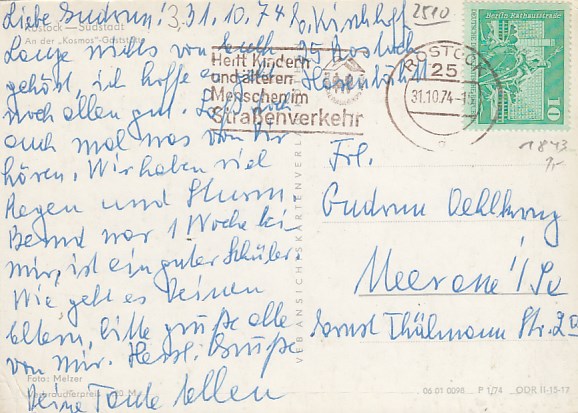 Liebe Gudrun! 31.10.74
Rostock — Südstadt
An der „Kosmos"-Gaststätte
Lange nichts von euch
gehört, ich hoffe es geht
noch allen gut. Laß doch
auch mal was von Dir
hören. Wir haben viel
Regen und Sturm.
Bernd war 1 Woche bei
mir, ist ein guter Schüler.
Wie geht es Deinen
Eltern, bitte grüße alle
von mir. Herzl. Grüße
Deine Tante Ellen
Foto: Melzer
Verbraucherpreis
VEB ANSICHTSKARTENVERLAG
Kirchhoff
25 Rostock
2510
Helft Kindern
und älteren
Menschen im
Straßenverkehr
ROSTOCK
25
31.10.74
Berlin, Rathausstraße
10
DDR
1843
Frl.
Gudrun
Meerane i/Sa
Ernst Thälmann Str.
06 01 0098 P 1/74 DDR II-15-17